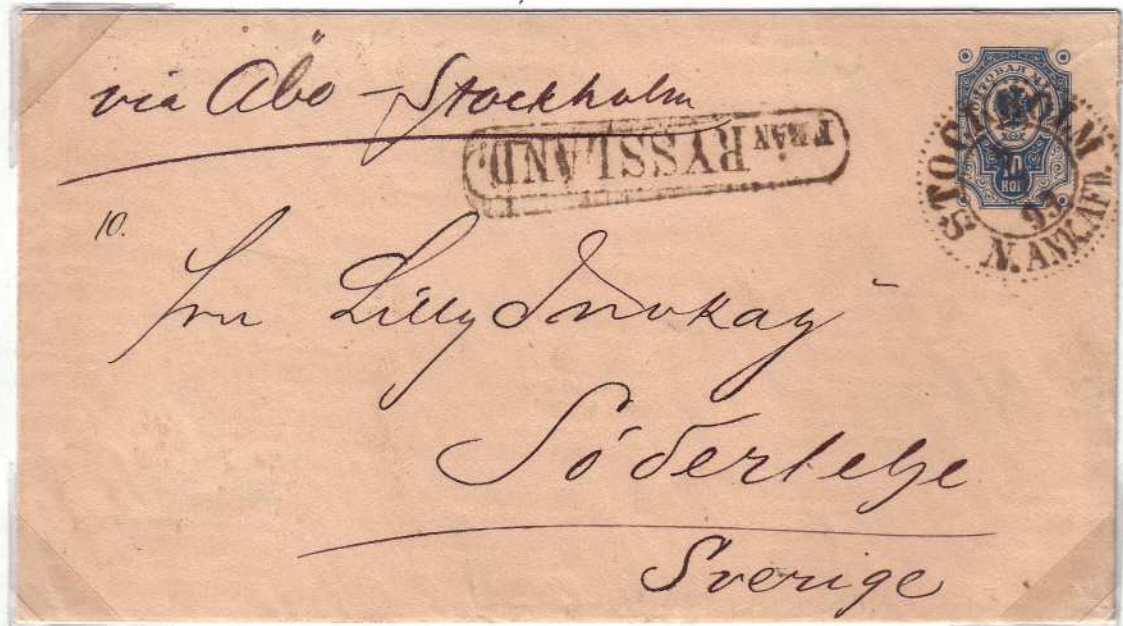 via Åbo - Stockholm
FRÅN RYSSLAND.
ПОЧТОВАЯ МАРКА
10
КОП
STOCKHOLM
93
N. ANK. AFD.
10.
Fru Lilly
Södertelge
Sverige